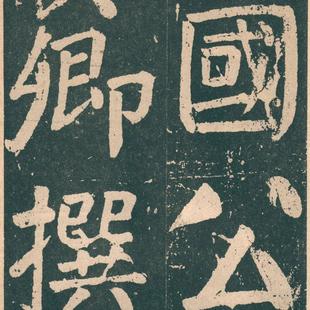 國公
卿撰